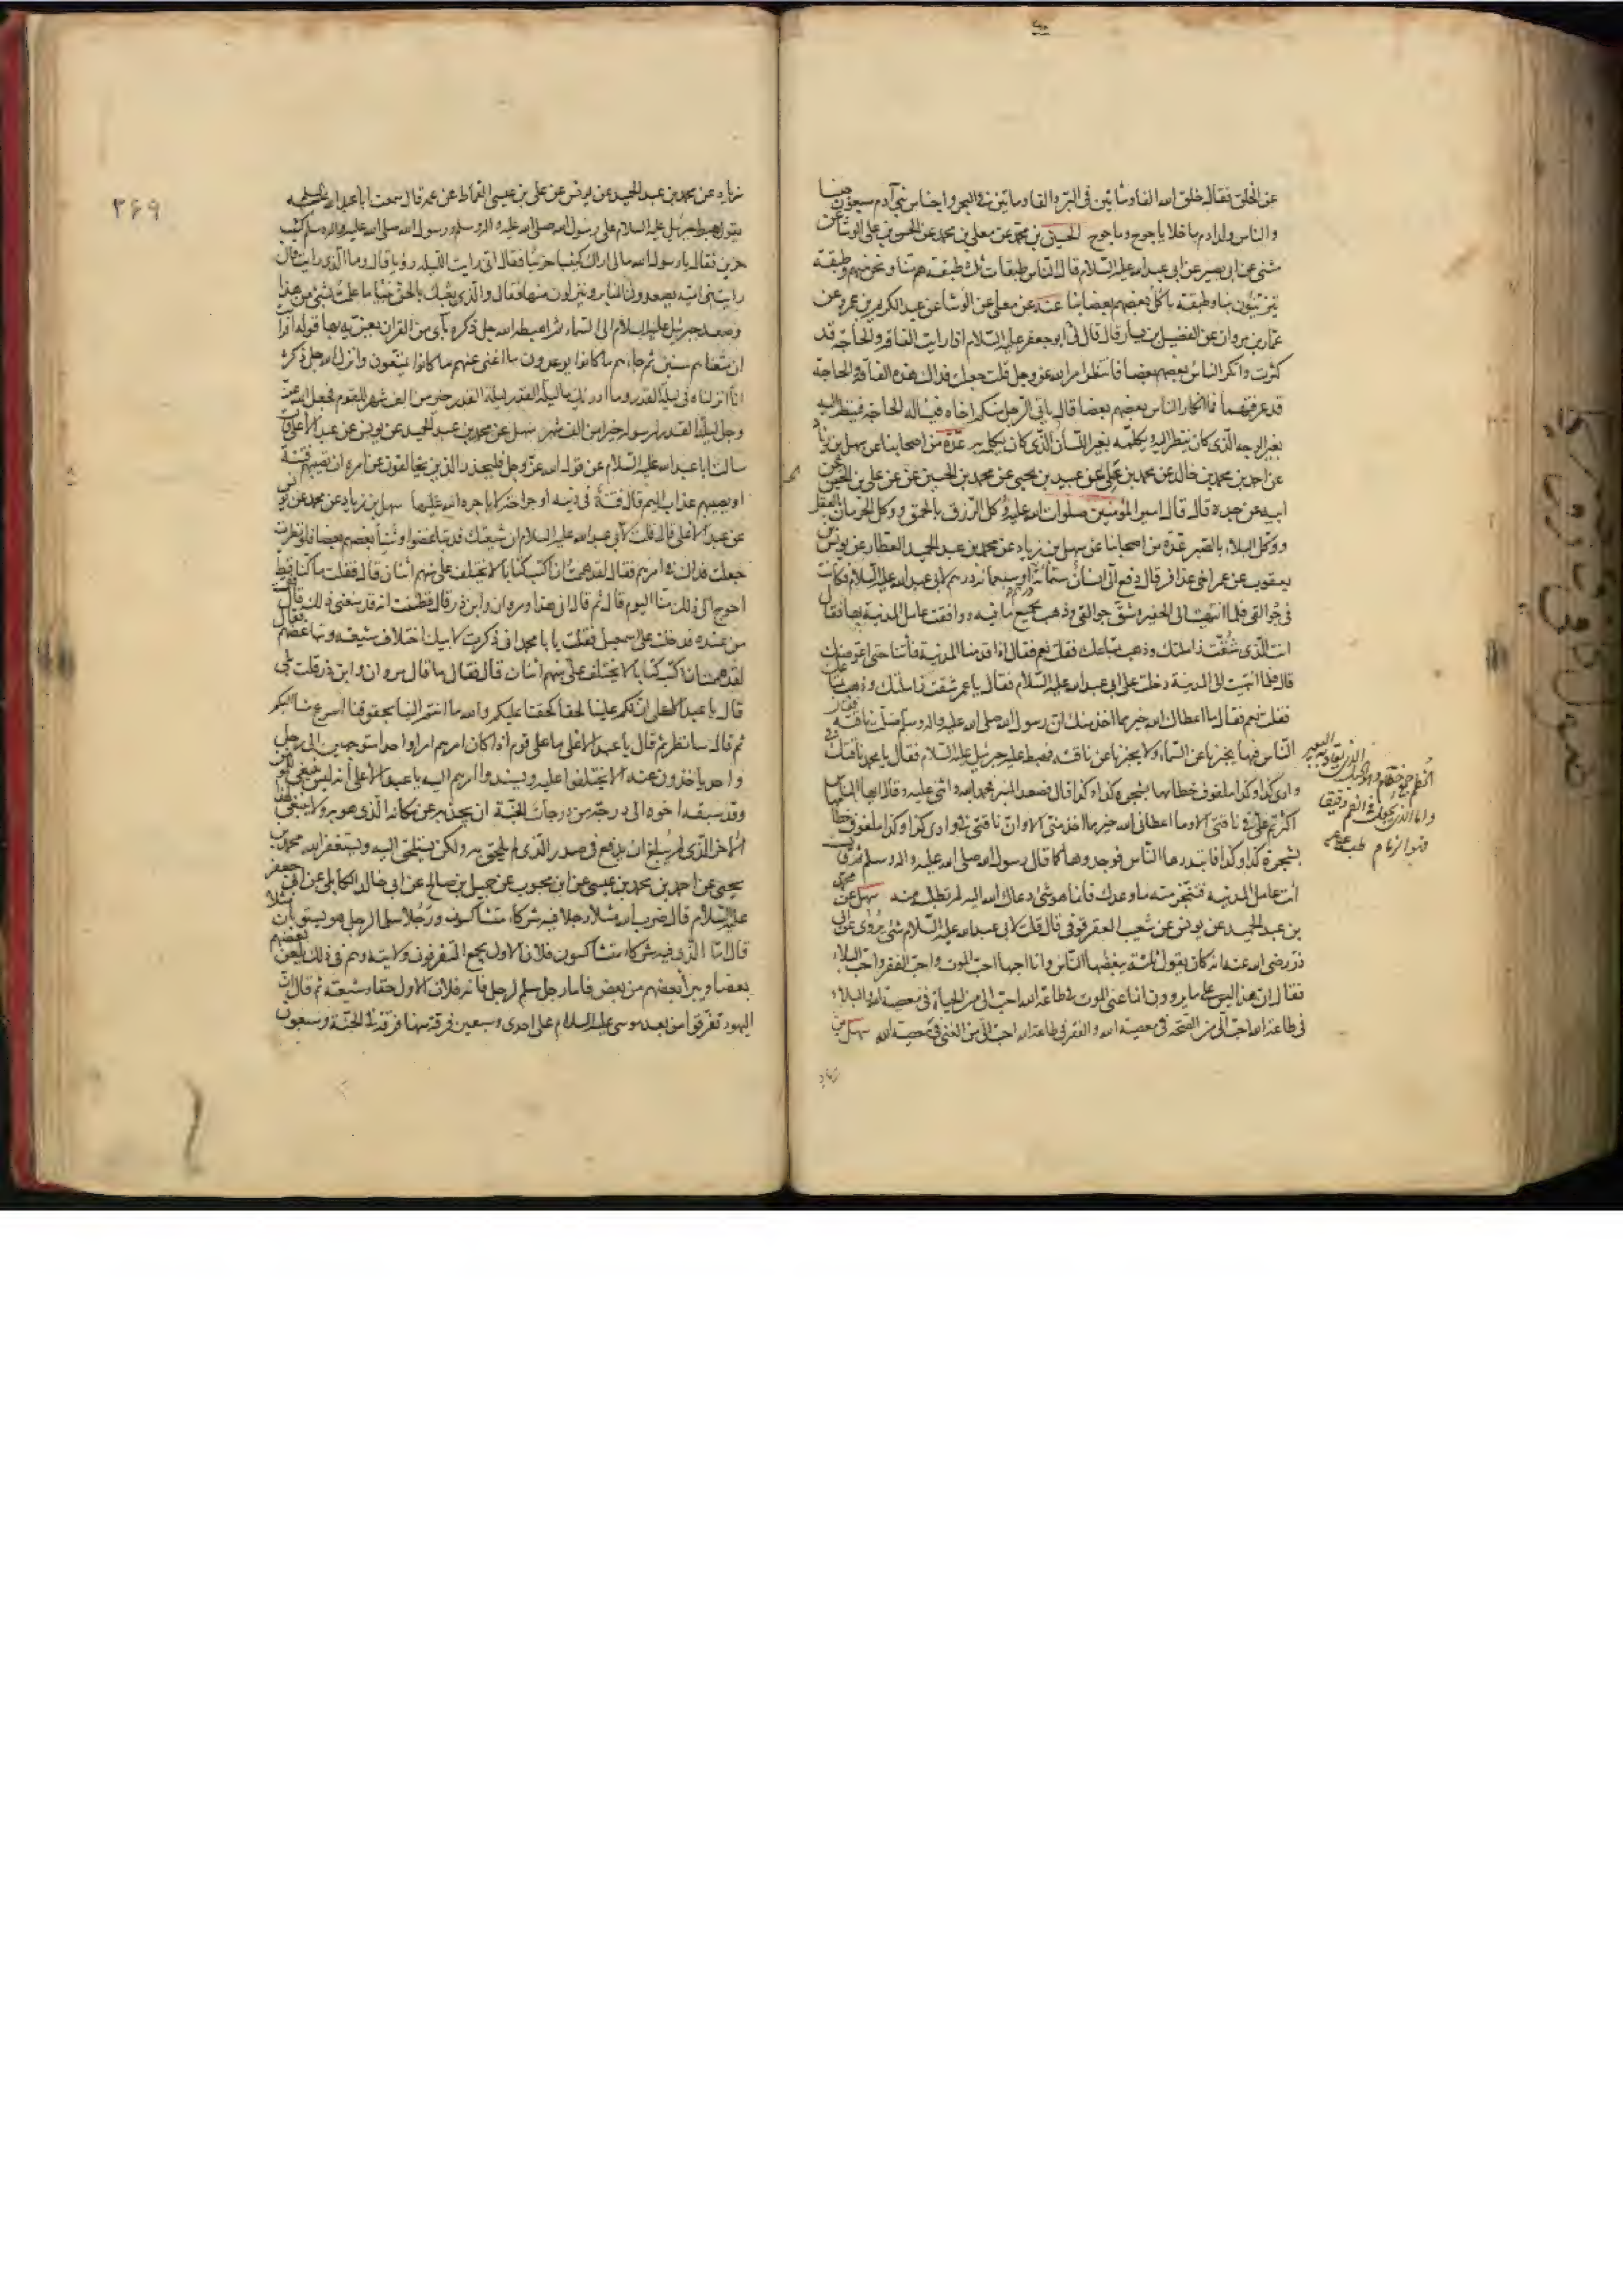 عن الخلق فقال خلق الله الفا ومأتين في البر والفا ومأتين في البحر واجناس بني آدم سبعون جنسا
والناس ولد ادم ما خلا ياجوج وماجوج الحسين بن محمد عن معلى بن محمد عن الحسن بن علي الوشا عن
مثنى عن ابي بصير عن ابي عبد الله عليه السلام قال الناس طبقات ثلث طبقة هم منا ونحن منهم وطبقة
يتزينون بنا وطبقة ياكل بعضهم بعضا بنا عنه عن معلى عن الوشا عن عبد الكريم بن عمرو عن
عمار بن مروان عن الفضيل بن يسار قال قال لي ابو جعفر عليه السلام اذا رايت الفاقة والحاجة قد
كثرت وانكر الناس بعضهم بعضا فانتظر امر الله عز وجل قلت جعلت فداك هذه الفاقة والحاجة
قد عرفتهما فما انكار الناس بعضهم بعضا قال ياتي الرجل منكم اخاه فيسأله الحاجة فينظر اليه
بغير الوجه الذي كان ينظر اليه ويكلمه بغير اللسان الذي كان يكلمه به عدة من اصحابنا عن سهل بن زياد
عن احمد بن محمد بن خالد عن محمد بن علي عن عبيد بن يحيى عن محمد بن الحسين عن علي بن الحسين عن
ابيه عن جده قال قال امير المؤمنين صلوات الله عليه وكل الرزق بالحمق ووكل الحرمان بالعقل
ووكل البلاء بالصبر عدة من اصحابنا عن سهل بن زياد عن محمد بن عبد الحميد العطار عن يونس بن
يعقوب عن عمر اخي عذافر قال دفع الى انسان ستمائة او سبعمائة درهم لابي عبد الله عليه السلام فكانت
في جوالقي فلما انتهيت الى الحفيرة شق جوالقي وذهب بجميع ما فيه ووافقت عامل المدينة بها فقال
انت الذي شقت زاملتك وذهب بمتاعك فقلت نعم فقال اذا قدمنا المدينة فأتنا حتى اعوضك
قال فلما انتهيت الى المدينة دخلت على ابي عبد الله عليه السلام فقال يا عمر شقت زاملتك وذهب بمتاعك
فقلت نعم فقال ما اعطاك الله خير مما اخذ منك ان رسول الله صلى الله عليه واله وسلم ضلت ناقته فقال
الناس فيها يخبرنا عن السماء ولا يخبرنا عن ناقته فهبط عليه جبرئيل عليه السلام فقال يا محمد ناقتك في
وادي كذا وكذا ملفوف خطامها بشجرة كذا وكذا قال فصعد المنبر فحمد الله واثنى عليه وقال ايها الناس
اكثرتم علي في ناقتي الا وما اعطاني الله خير مما اخذ مني الا وان ناقتي في وادي كذا وكذا ملفوف خطامها
بشجرة كذا وكذا فابتدرها الناس فوجدوها كما قال رسول الله صلى الله عليه واله وسلم
ائت عامل المدينة فتنجز منه ما وعدك فانما هو شيء دعاك الله اليه لم تطلبه منه سهل عن محمد
بن عبد الحميد عن يونس عن شعيب العقرقوفي قال قلت لابي عبد الله عليه السلام شيء يروى عن ابي
ذر رضي الله عنه انه كان يقول ثلثة يبغضها الناس وانا احبها احب الموت واحب الفقر واحب البلاء
فقال ان هذا ليس على ما يروون انما عنى الموت في طاعة الله احب الي من الحياة في معصية الله والبلاء
في طاعة الله احب الي من الصحة في معصية الله والفقر في طاعة الله احب الي من الغنى في معصية الله سهل بن
زياد
٣۶٩
زياد عن محمد بن عبد الحميد عن يونس عن علي بن عيسى القماط عن عمه قال سمعت ابا عبد الله عليه السلم
يقول هبط جبرئيل عليه السلام على رسول الله صلى الله عليه واله وسلم ورسول الله صلى الله عليه واله وسلم كئيب
حزين فقال يا رسول الله ما لي اراك كئيبا حزينا فقال اني رايت الليلة رؤيا قال وما الذي رايت قال
رايت بني امية يصعدون المنابر وينزلون منها فقال والذي بعثك بالحق نبيا ما علمت بشيء من هذا
وصعد جبرئيل عليه السلام الى السماء ثم اهبطه الله جل ذكره بآي من القران يعزيه بها قوله افرأيت
ان متعناهم سنين ثم جاءهم ما كانوا يوعدون ما اغنى عنهم ما كانوا يمتعون وانزل الله جل ذكره
انا انزلناه في ليلة القدر وما ادريك ما ليلة القدر ليلة القدر خير من الف شهر للقوم فجعل الله عز
وجل ليلة القدر لرسوله خيرا من الف شهر سهل عن محمد بن عبد الحميد عن يونس عن عبد الاعلى قال
سالت ابا عبد الله عليه السلام عن قول الله عز وجل فليحذر الذين يخالفون عن امره ان تصيبهم فتنة
او يصيبهم عذاب اليم قال فتنة في دينه او جراحة لا ياجره الله عليها سهل بن زياد عن محمد عن يونس
عن عبد الاعلى قال قلت لابي عبد الله عليه السلام ان شيعتك قد تباغضوا وشنأ بعضهم بعضا فلو نظرت
جعلت فداك في امرهم فقال لقد هممت ان اكتب كتابا لا يختلف علي منهم اثنان قال فقلت ما كنا قط
احوج الى ذلك منا اليوم قال ثم قال انى هذا ومروان وابن ذر قال فظننت انه قد منعني ذلك قال فقمت
من عنده فدخلت على اسمعيل فقلت يا با محمد اني ذكرت لابيك اختلاف شيعته وتباغضهم فقال
لقد هممت ان اكتب كتابا لا يختلف علي منهم اثنان قال فقال ما قال مروان وابن ذر قلت بلى
قال يا عبد الاعلى ان لكم علينا لحقا كحقنا عليكم والله ما انتم الينا بحقوقنا اسرع منا اليكم
ثم قال سانظر ثم قال يا عبد الاعلى ما على قوم اذا كان امرهم امرا واحدا متوجهين الى رجل
واحد ياخذون عنه الا يختلفوا عليه ويسندوا امرهم اليه يا عبد الاعلى انه ليس ينبغي للمؤمن
وقد سبقه اخوه الى درجة من درجات الجنة ان يجذبه عن مكانه الذي هو به ولا ينبغي لهذا
الاخر الذي لم يبلغ ان يدفع في صدر الذي لم يلحق به ولكن يستلحق اليه ويستغفر الله محمد بن
يحيى عن احمد بن محمد بن عيسى عن ابن محبوب عن جميل بن صالح عن ابي خالد الكابلي عن ابي جعفر
عليه السلام قال ضرب الله مثلا رجلا فيه شركاء متشاكسون ورجلا سلما لرجل هل يستويان مثلا
قال اما الذي فيه شركاء متشاكسون فلان الاول يجمع المتفرقون ولايته وهم في ذلك يلعن بعضهم
بعضا ويبرأ بعضهم من بعض فاما رجل سلم لرجل فانه فلان الاول حقا وشيعته ثم قال ان
اليهود تفرقوا من بعد موسى عليه السلام على احدى وسبعين فرقة منها فرقة في الجنة وسبعون